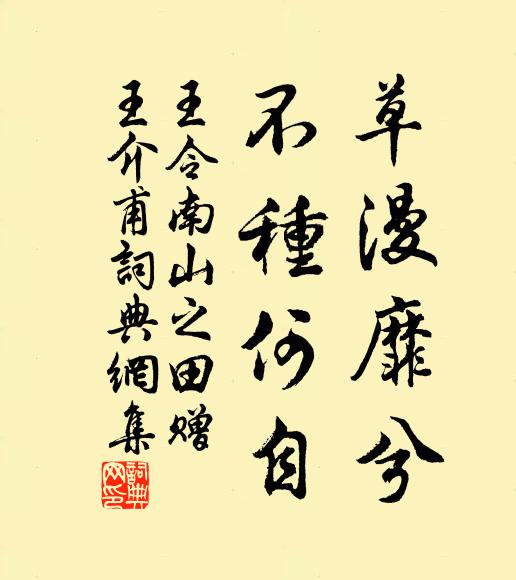 草漫靡兮
不種何自
王令南山之田贈
王介甫詞典網集
詞典网印